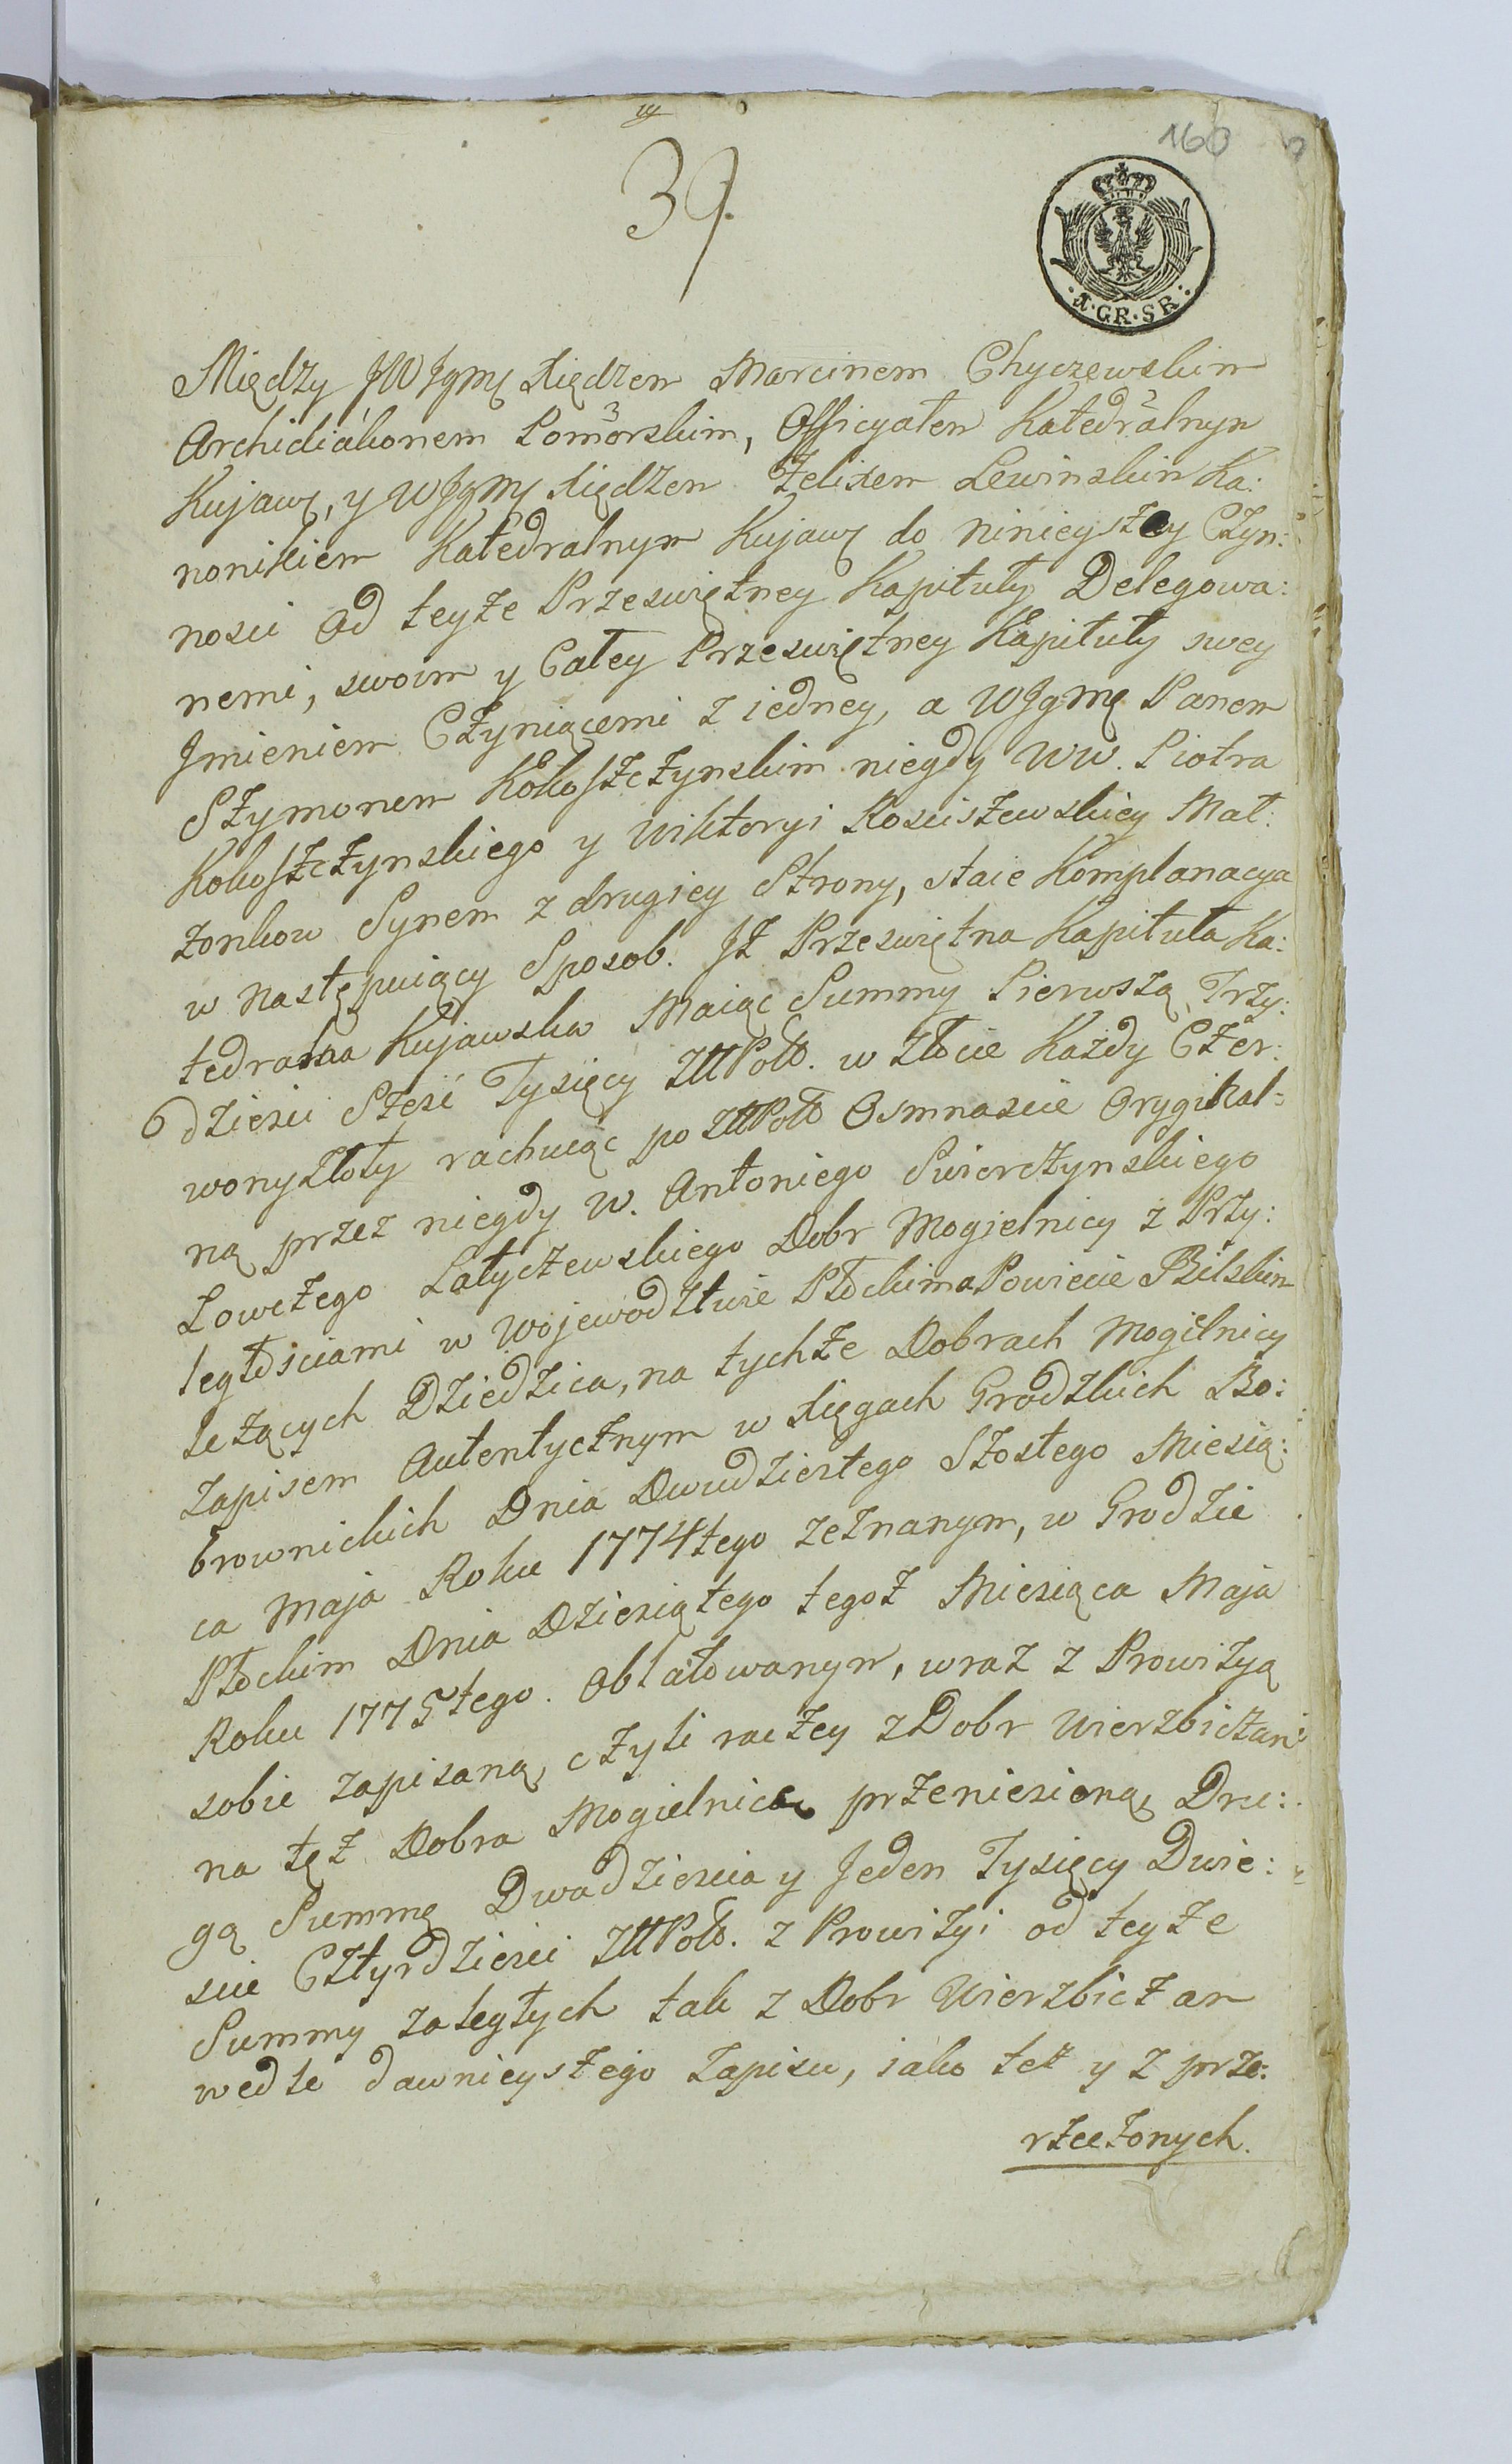 39.
160
4.GR.SR.
Między JW Jgmę Xiędzem Marcinem Chyczewskim
Archidiakonem Pomorskim, Officyałem Katedralnym
Kujawę, y WJgmę Xiędzem Felixem Lewinskim Ka:
nonikiem Katedralnym Kujawę do ninieyszey Czyn:
nosci od teyże Przeswiętney Kapituły Delegowa:
nemi, swoim y Całey Przeswiętney Kapituły swey
Jmieniem Czyniącemi z iedney, a WJgmę Panem
Szymonem Kokoszczynskim niegdy WW. Piotra
Kokoszczynskiego y Wiktoryi Kosciszewskiey Mał:
żonkow Synem z drugiey Strony, staie Komplanacya
w następuiący Sposob. Jż Przeswiętna Kapituła Ka:
tedralna Kujawska Maiąc Summy Pierwszą Trzy:
dziesci Szesć Tysięcy Złł Pols. w Złocie Każdy Czer:
wony Złoty rachuiąc po Złł Pols Osmnascie Orygikal:
ną przez niegdy W. Antoniego Swierczynskiego
Łowczego Latyczewskiego Dobr Mogielnicy z Przy:
ległościami w Wojewodztwie Płockim a Powiecie Bilskim
leżących Dziedzica, na tychże Dobrach Mogilnicy
Zapisem Autentycznym w Xięgach Grodzkich Bo:
brownickich Dnia Dwudziestego Szostego Miesią:
ca Maja Roku 1774tego zeznanym, w Grodzie
Płockim Dnia Dziesiątego tegoż Miesiąca Maja
Roku 1775tego. Oblatowanym, wraz z Prowizyą
sobie zapisaną, czyli raczey z Dobr Wierzbiczan
na też Dobra Mogielnicę przeniesioną, Dru:
gą Summę Dwadziescia y Jeden Tysięcy Dwie:
scie Cztyrdziesci Złł Pols. z Prowizyi od teyże
Summy zaległych tak z Dobr Wierzbiczan
wedle dawnieyszego Zapisu, iako też y z prze:
rzeczonych.